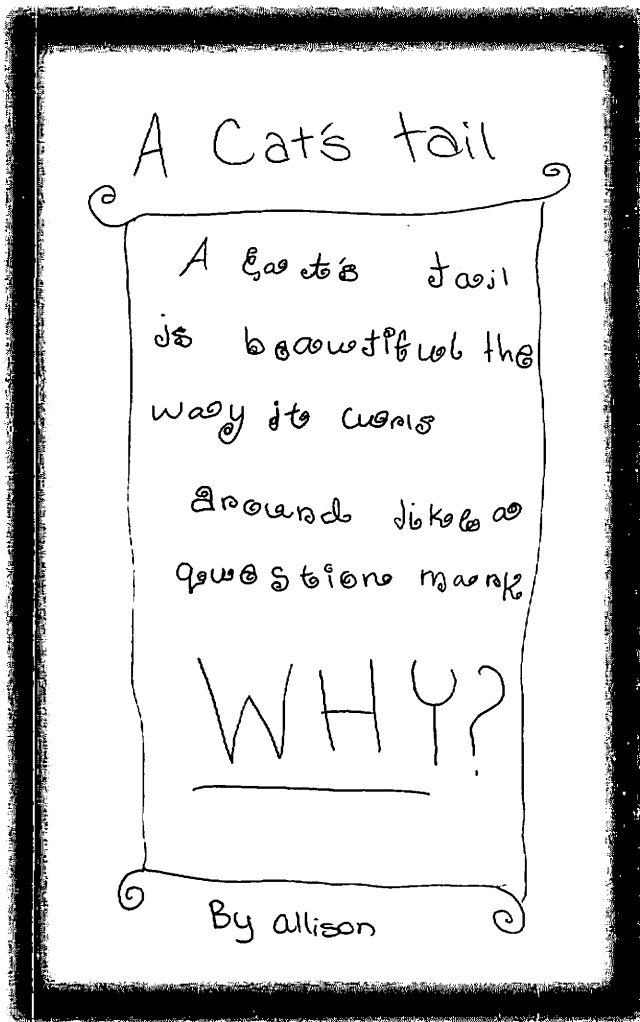 A Cat's tail
A Cat's tail
is beautiful the
way it curls
around like a
question mark
WHY?
By allison